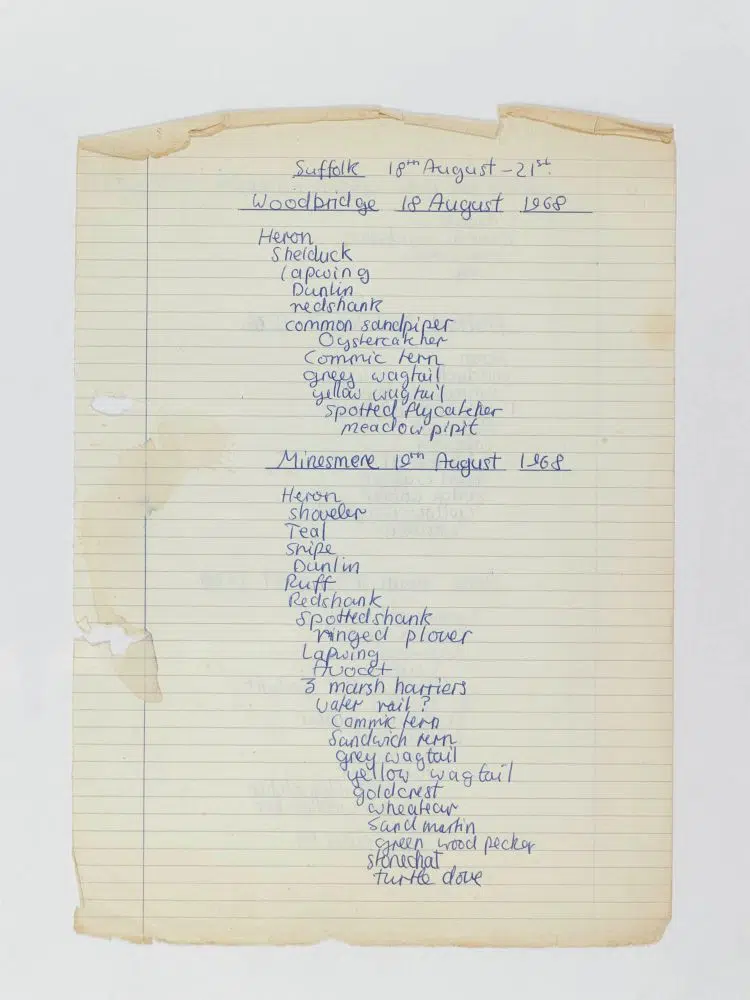 Suffolk 18th August - 21st.
Woodbridge 18 August 1968
Heron
Shelduck
lapwing
Dunlin
redshank
common sandpiper
Oystercatcher
Commic tern
grey wagtail
yellow wagtail
spotted flycatcher
meadow pipit
Minesmere 19th August 1968
Heron
shoveler
Teal
snipe
Dunlin
Ruff
Redshank
Spottedshank
ringed plover
Lapwing
Avocet
3 marsh harriers
Water rail ?
Commic tern
Sandwich tern
grey wagtail
yellow wagtail
goldcrest
wheatear
Sand martin
green wood pecker
stonechat
turtle dove